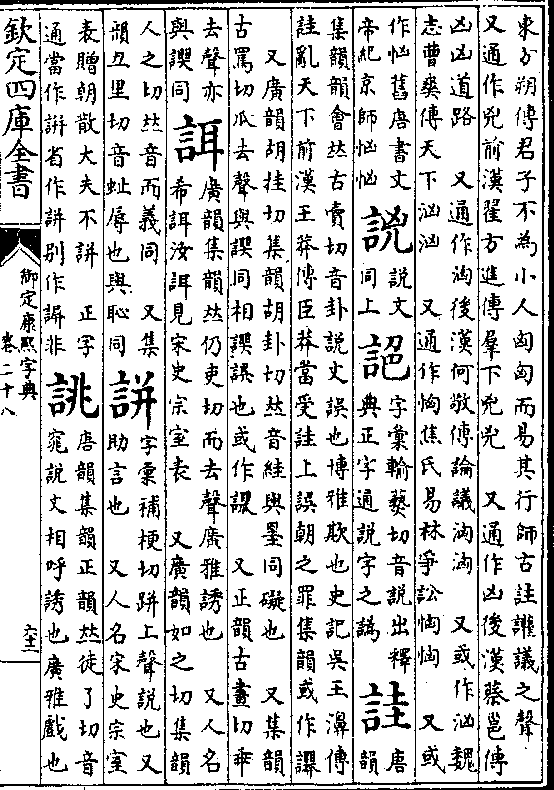 東方朔傳君子不為小人匈匈而易其行師古註讙議之聲
又通作兇前漢翟方進傳羣下兇兇　又通作凶後漢蔡邕傳
凶凶道路　又通作洶後漢何敞傳論議洶洶　又或作汹魏
志曹爽傳天下汹汹　又通作恟焦氏易林爭訟恟恟　又或
作忷舊唐書文
帝紀京師忷忷
說文
同上
字彙輸藝切音說出釋
典正字通說字之譌
詿
唐
韻
集韻韻會𠀤古賣切音卦說文誤也博雅欺也史記吳王濞傳
詿亂天下前漢王莽傳臣莽當受詿上誤朝之罪集韻或作
又廣韻胡挂切集韻胡卦切𠀤音絓與罣同礙也　又集韻
古罵切瓜去聲與諣同相諣誤也或作　又正韻古畫切乖
去聲亦
與諣同
誀
廣韻集韻𠀤仍吏切而去聲廣雅誘也　又人名
希誀汝誀見宋史宗室表　又廣韻如之切集韻
人之切𠀤音而義同　又集
韻丑里切音　辱也與恥同
誁
字彙補梗切跰上聲説也又
助言也　又人名宋史宗室
表贈朝散大夫不誁　正字
通當作　省作誁別作　非
誂
唐韻集韻正韻𠀤徒了切音
窕說文相呼誘也廣雅戲也
欽定四庫全書
御定康熙字典
卷二十八